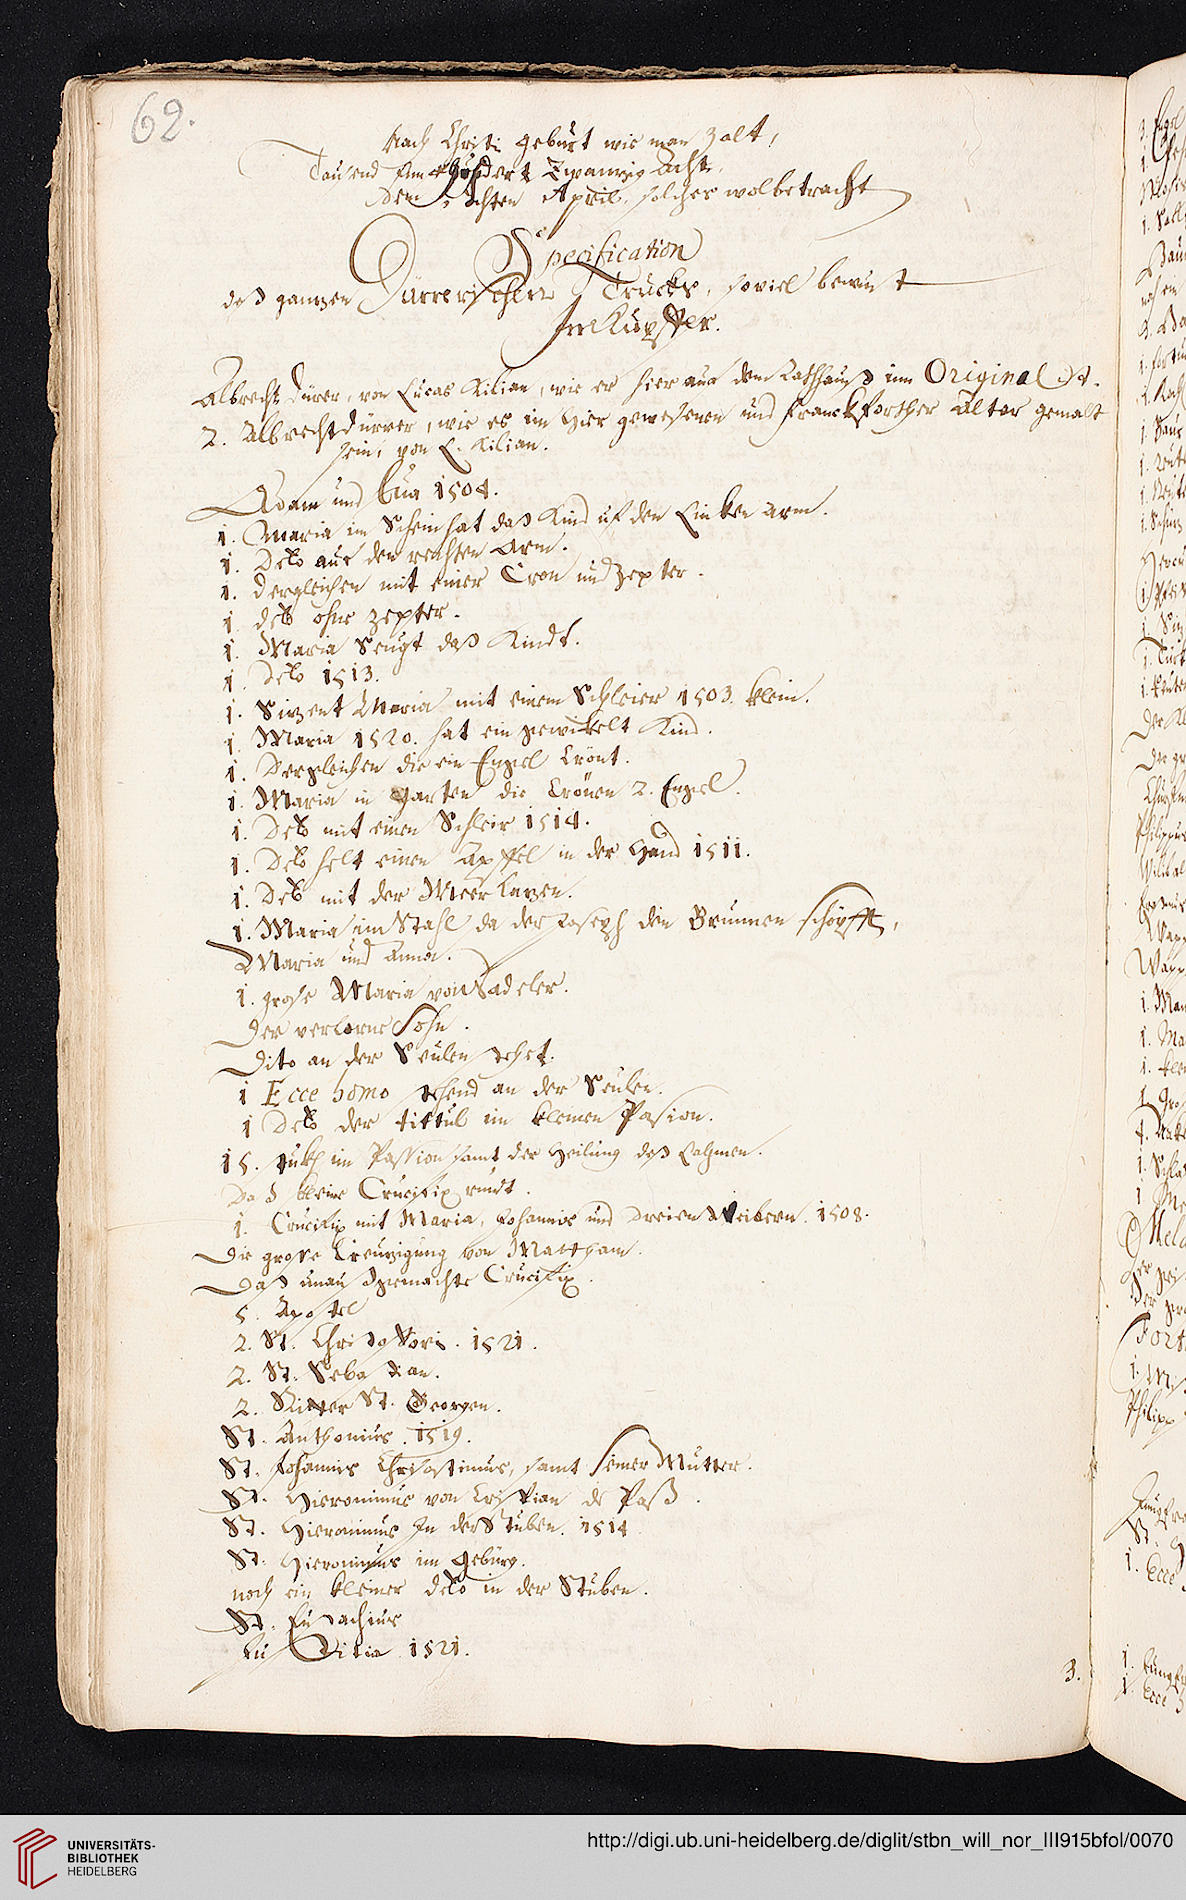 62.
Nach Christi geburt wie man zalt,
Tausend fünffhundert Zwanzig Acht,
Dem Achten April, solches wolbetracht
Specification
deß ganzen Dürrerischen Trucks, soviel bewust
In Kupffer.
Albrecht Dürer, von Lucas Kilian, wie er hier auf dem Rathhauß im Original ist.
2. Albrecht Dürrer, wie es im hier gewesenen und Franckforther Altar gemalt
sein, von L. Kilian.
Adam und Eua 1504.
1. Maria im Schein hat daß Kind uf den Linken arm.
1. Deto auf den rechten Arm.
1. dergleichen mit einer Cron und Zepter.
1. deto ohne Zepter.
1. Maria Seugt daß Kindt.
1. Deto 1513.
1. Sizent Maria mit einem Schleier 1503. klein.
1. Maria 1520. hat ein gewikelt Kind.
1. Dergleichen die ein Engel Crönt.
1. Maria in garten die Crönen 2. Engel.
1. Deto mit einen Schleir 1514.
1. Deto helt einen Apffel in der Hand 1511.
1. Deto mit der Meer Kazen.
1. Maria im Stahl da der Joseph den Brunnen schöpfft,
Maria und Anna.
1. große Maria von Sadeler.
Der verlorne Sohn.
Dito an der Seulen stehet.
1 Ecce homo stehend an der Seulen.
1 Deto der tittul im kleinen Pasion.
15. stukh im Passion samt der Heilung deß Lahmen.
Daß kleine Crucifix rundt.
1. Crucifix mit Maria, Johannis und dreien Weibern. 1508.
Die große Creuzigung von Mattham.
Daß unaußgemachte Crucifix.
5. Apostel
2. St. Christofforis. 1521.
2. St. Sebastian.
2. Ritter St. Georgen.
St. Anthonius. 1519.
St. Johannis Chrisostimus, samt seiner Mutter.
St. Hieronimus von Crispian de Paß.
St. Hieronimus In der Stuben. 1514
St. Hieronimus im gebürg.
noch ein kleiner deto in der Stuben.
St. Eustachius
1521.
3.
UNIVERSITÄTS-
BIBLIOTHEK
HEIDELBERG
http://digi.ub.uni-heidelberg.de/diglit/stbn_will_nor_III915bfol/0070